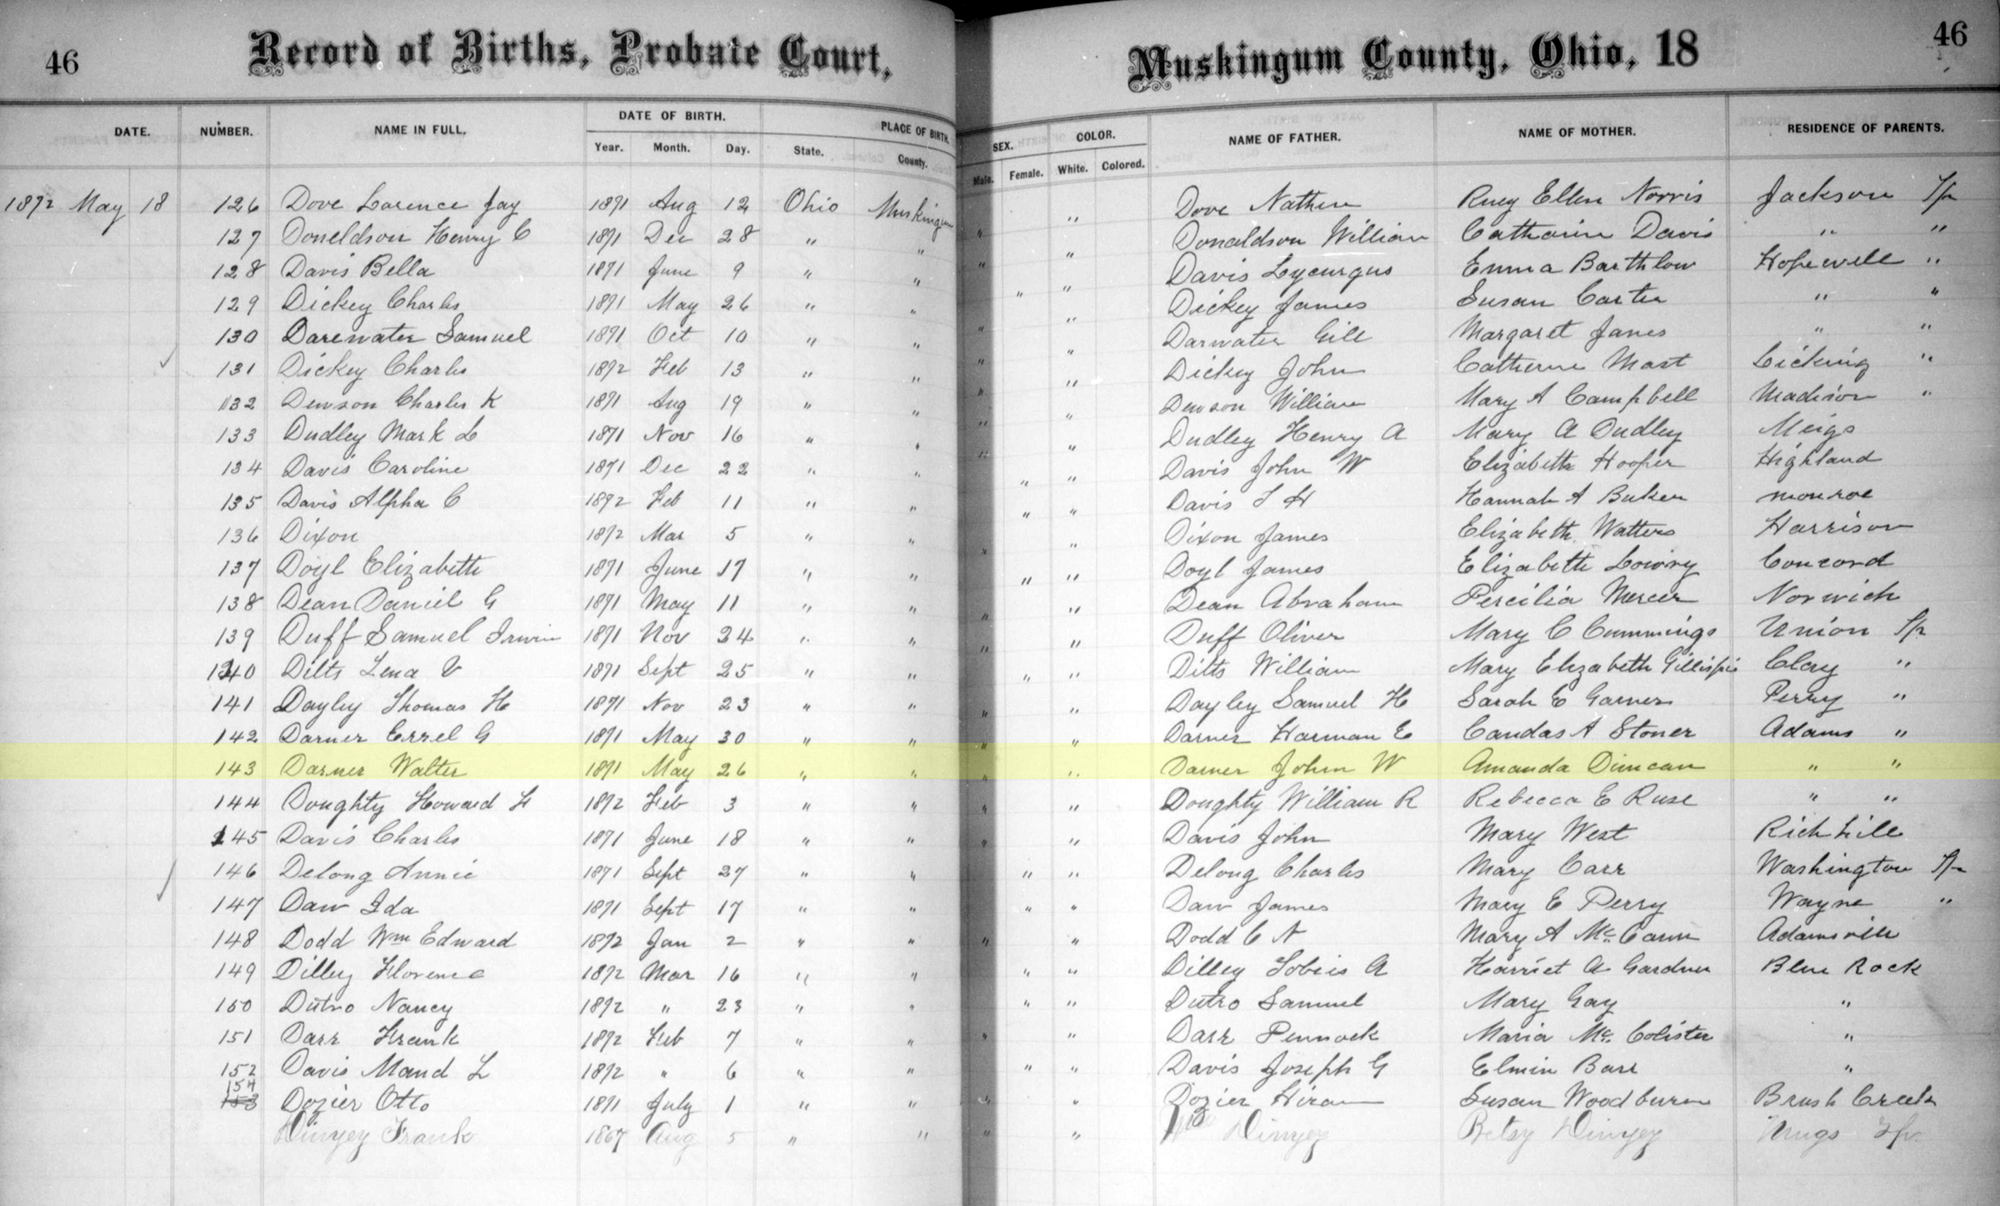 46 Record of Births, Probate Court, Muskingum County, Ohio, 18 46
DATE. NUMBER. NAME IN FULL. DATE OF BIRTH. PLACE OF BIRTH. SEX. COLOR. NAME OF FATHER. NAME OF MOTHER. RESIDENCE OF PARENTS.
Year. Month. Day. State. County. Male. Female. White. Colored.
1892 May 18 126 Dove Larence Jay 1891 Aug 12 Ohio Muskingum " Dove Nathen Ruey Ellen Norris Jackson Tp
127 Doneldson Henry C 1891 Dec 28 " " " " Donaldson William Catharine Davis " "
128 Davis Bella 1891 June 9 " " " " Davis Lycurgus Emma Barthlow Hopewell "
129 Dickey Charles 1891 May 26 " " " " Dickey James Susan Carter " "
130 Darewater Samuel 1891 Oct 10 " " " " Darwater Gill Margaret Janes " "
131 Dickey Charles 1892 Feb 13 " " " " Dickey John Catherine Mast Licking "
132 Denson Charles K 1891 Aug 19 " " " " Denson William Mary A Campbell Madison "
133 Dudley Mark L 1891 Nov 16 " " " " Dudley Henry A Mary A Dudley Meigs
134 Davis Caroline 1891 Dec 22 " " " " Davis John W Elizabeth Hooper Highland
135 Davis Alpha C 1892 Feb 11 " " " " Davis T H Hannah A Buker Monroe
136 Dixon 1892 Mar 5 " " " " Dixon James Elizabeth Watters Harrison
137 Doyl Elizabeth 1891 June 17 " " " " Doyl James Elizabeth Lowry Concord
138 Dean Daniel G 1891 May 11 " " " " Dean Abraham Percilia Mercer Norwich
139 Duff Samuel Irwin 1891 Nov 24 " " " " Duff Oliver Mary C Cummings Union Tp
140 Dilts Lena V 1891 Sept 25 " " " " Dilts William Mary Elizabeth Gillispie Clay "
141 Dayley Thomas H 1891 Nov 23 " " " " Dayley Samuel H Sarah E Garner Perry "
142 Darner Errel G 1891 May 30 " " " " Darner Harman E Candas A Stoner Adams "
143 Darner Walter 1891 May 26 " " " " Darner John W Amanda Duncan " "
144 Doughty Howard F 1892 Feb 3 " " " " Doughty William R Rebecca E Ruse " "
145 Davis Charles 1891 June 18 " " " " Davis John Mary West Rich hill
146 Delong Annie 1891 Sept 27 " " " " Delong Charles Mary Carr Washington Tp
147 Daw Ida 1891 Sept 17 " " " " Daw James Mary E Perry Wayne "
148 Dodd Wm Edward 1892 Jan 2 " " " " Dodd C N Mary A McCann Adamsville
149 Dilley Florence 1892 Mar 16 " " " " Dilley Tobias A Harriet A Gardner Blue Rock
150 Dutro Nancy 1892 " 23 " " " " Dutro Samuel Mary Gay "
151 Darr Frank 1892 Feb 7 " " " " Darr Pennock Maria McColister "
152 Davis Maud L 1892 " 6 " " " " Davis Joseph G Elmin Barr "
154
153 Dozier Otto 1891 July 1 " " " " Dozier Hiram Susan Woodburn Brush Creek
Dinyey Frank 1867 Aug 5 " " " " Dinyey Betsy Dinyey Meigs Tp.